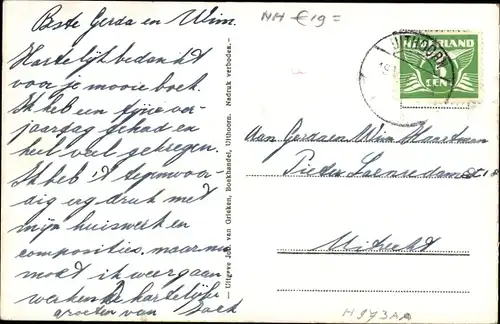 Beste Gerda en Wim.
Hartelijk bedankt
voor je mooie boek.
Ik heb een fijne ver-
jaardag gehad en
heel veel gekregen.
Ik heb 't tegenwoor-
dig erg druk met
mijn huiswerk en
composities, maar nu
moet ik weer gaan
werken de hartelijke
groeten van
NH € 19=
– Uitgave Joh. van Grieken, Boekhandel, Uithoorn. Nadruk verboden. –
UITHOORN
NEDERLAND
CENT
Aan Gerda en Wim
Pieter Saenredam
Utrecht
H973AA